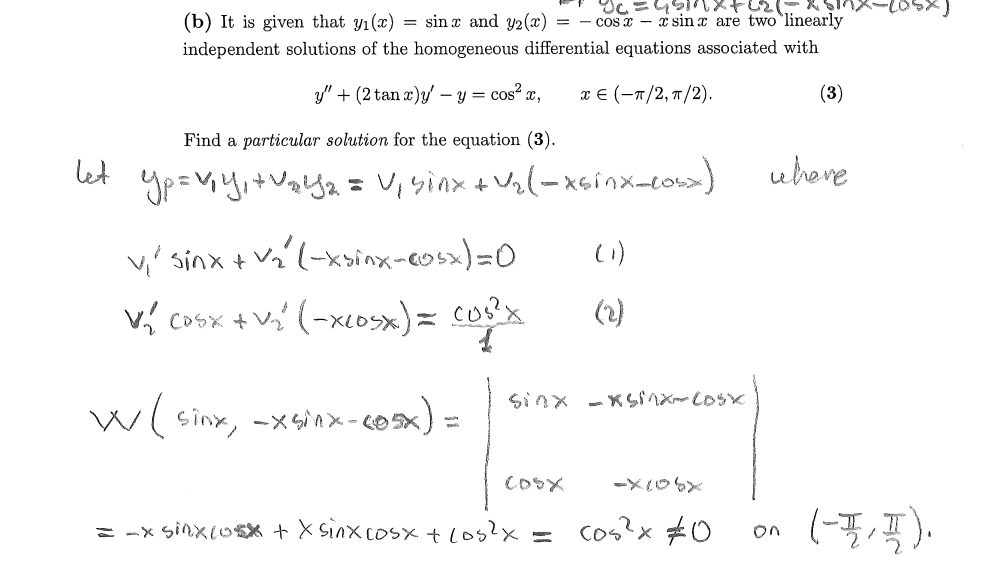 y_c = c_1 sinx + c_2(-xsinx-cosx)
(b) It is given that y₁(x) = sin x and y₂(x) = − cos x − x sin x are two linearly
independent solutions of the homogeneous differential equations associated with
y″ + (2 tan x)y′ − y = cos² x, x ∈ (−π/2, π/2). (3)
Find a particular solution for the equation (3).
let y_p = v₁y₁ + v₂y₂ = v₁ sinx + v₂(-xsinx-cosx) where
v₁' sinx + v₂'(-xsinx-cosx) = 0 (1)
v₂' cosx + v₂'(-xcosx) = cos²x/1 (2)
W(sinx, -xsinx-cosx) = | sinx -xsinx-cosx |
cosx -xcosx
= -xsinxcosx + xsinxcosx + cos²x = cos²x ≠ 0 on (-π/2, π/2).